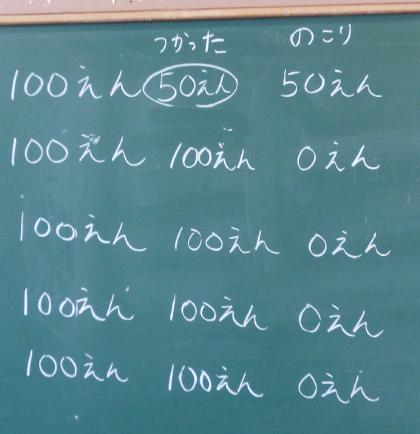 つかった のこり
100えん 50えん 50えん
100えん 100えん 0えん
100えん 100えん 0えん
100えん 100えん 0えん
100えん 100えん 0えん